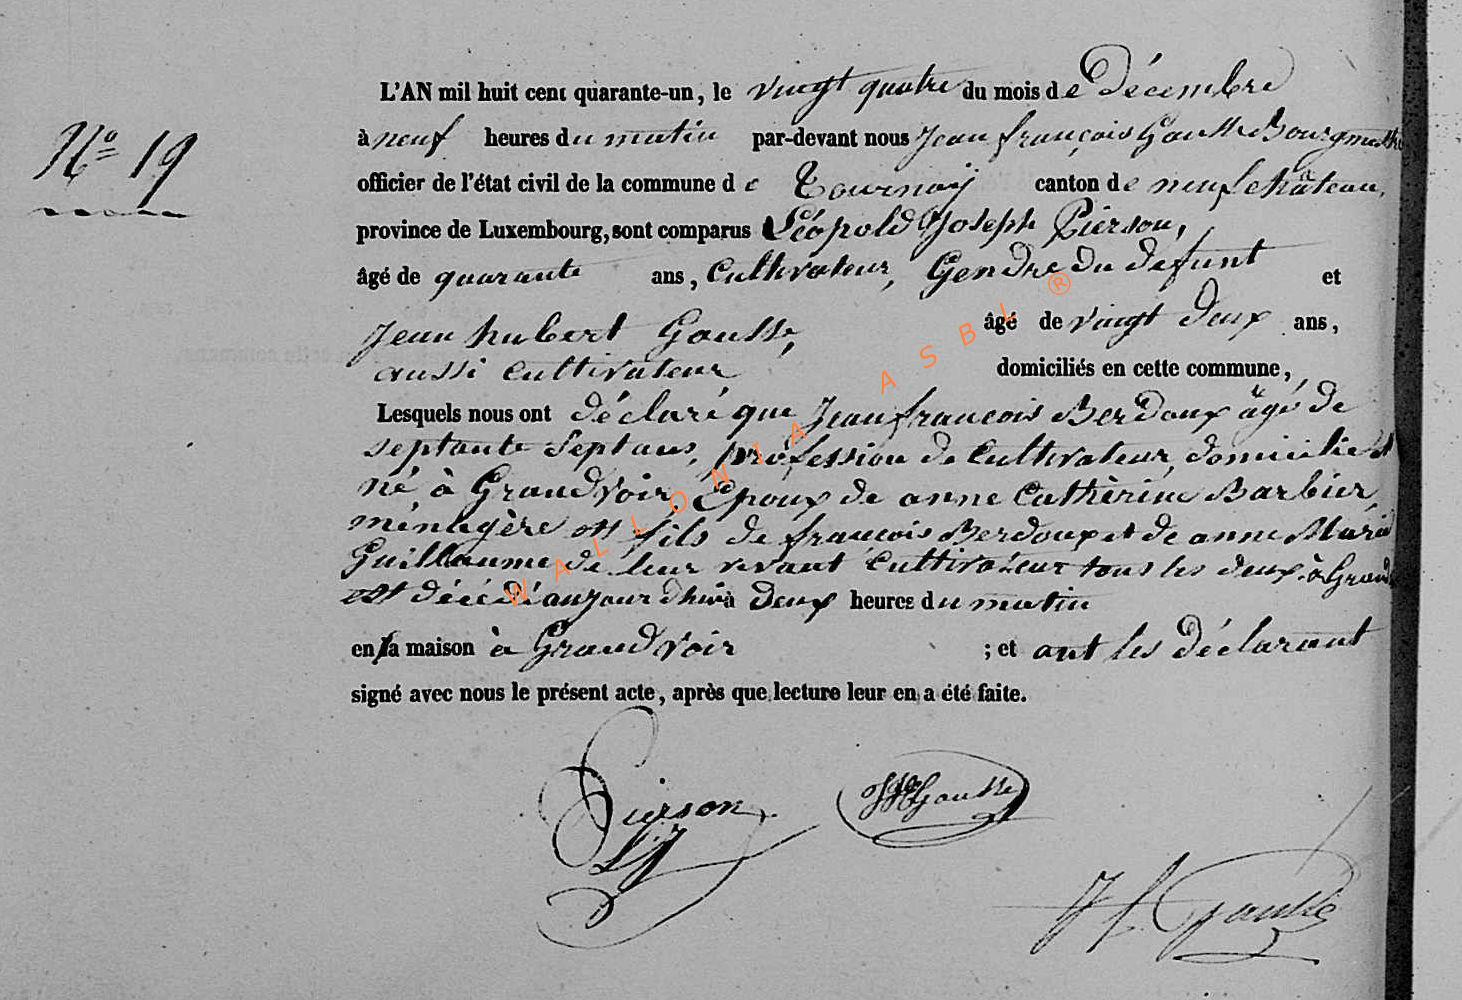 L'AN mil huit cent quarante-un, le vingt quatre du mois de Décembre
N° 19
à neuf heures du matin par-devant nous Jean françois Gausse Bourgmestre
officier de l'état civil de la commune de Tournay canton de neufchâteau,
province de Luxembourg, sont comparus Léopold Joseph Pierson,
âgé de quarante ans, Cultivateur, Gendre du defunt et
Jean hubert Gausse, âgé de vingt deux ans,
aussi cultivateur domiciliés en cette commune,
Lesquels nous ont déclaré que Jean francois Berdoux âgé de
septante Sept ans, profession de Cultivateur, domicilié et
né à Grandvoir, Epoux de anne Cathèrine Barbier
ménagère et fils de francois Berdoux et de anne Maria
Guillaume de leur vivant Cultivateur tous les deux à Grand
est décédé aujourdhui à deux heures du matin
en sa maison à Grandvoir ; et ont les déclarant
signé avec nous le présent acte, après que lecture leur en a été faite.
Pierson
LJ
JH Gausse
Jf. Gausse
WALLONIA ASBL ®